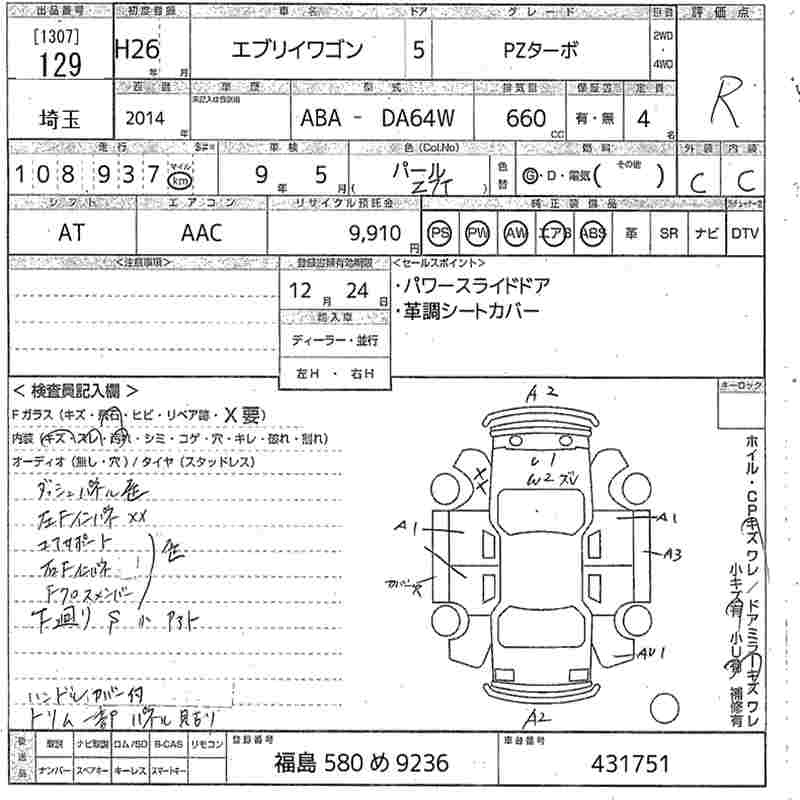 出品番号 初度登録 車名 ドア グレード 評価点
[1307]
129
H26 年 月
エブリイワゴン
5
PZターボ
2WD
・
4WD
R
埼玉
2014 年
車歴
型式
排気量
定員
ABA - DA64W
660 CC
有・無
4 名
走行
車検
色(Col.No)
色替
燃料
外装
内装
108937 マイル km
9 年 5 月
パール
Z7T
G・D・電気( その他 )
C
C
シフト
エアコン
リサイクル預託金
純正装備品
AT
AAC
9,910 円
PS PW AW エアB ABS 革 SR ナビ DTV
<注意事項>
登録書類有効期限
<セールスポイント>
12 月 24 日
・パワースライドドア
・革調シートカバー
輸入車
ディーラー・並行
左H ・ 右H
<検査員記入欄>
キーロック
Fガラス(キズ・飛石・ヒビ・リペア跡・X要)
内装(キズ・スレ・汚れ・シミ・コゲ・穴・キレ・破れ・割れ)
オーディオ(無し・穴)/タイヤ(スタッドレス)
ダッシュパネル歪
左Fインパネ XX
コアサポート
右Fインパネ
Fクロスメンバー
歪
下廻り S 小
ハンドルカバー付
トリム一部
A2
U1
W2 ズレ
XX
A1
A1
A3
カバー穴
AU1
A2
ホイル・CPキズワレ/ドアミラーキズワレ
小キズ有 小U有 補修有
後送品
取説 ナビ取説 ロム/SD B-CAS リモコン
ナンバー スペアキー キーレス スマートキー
登録番号
福島 580 め 9236
車台番号
431751